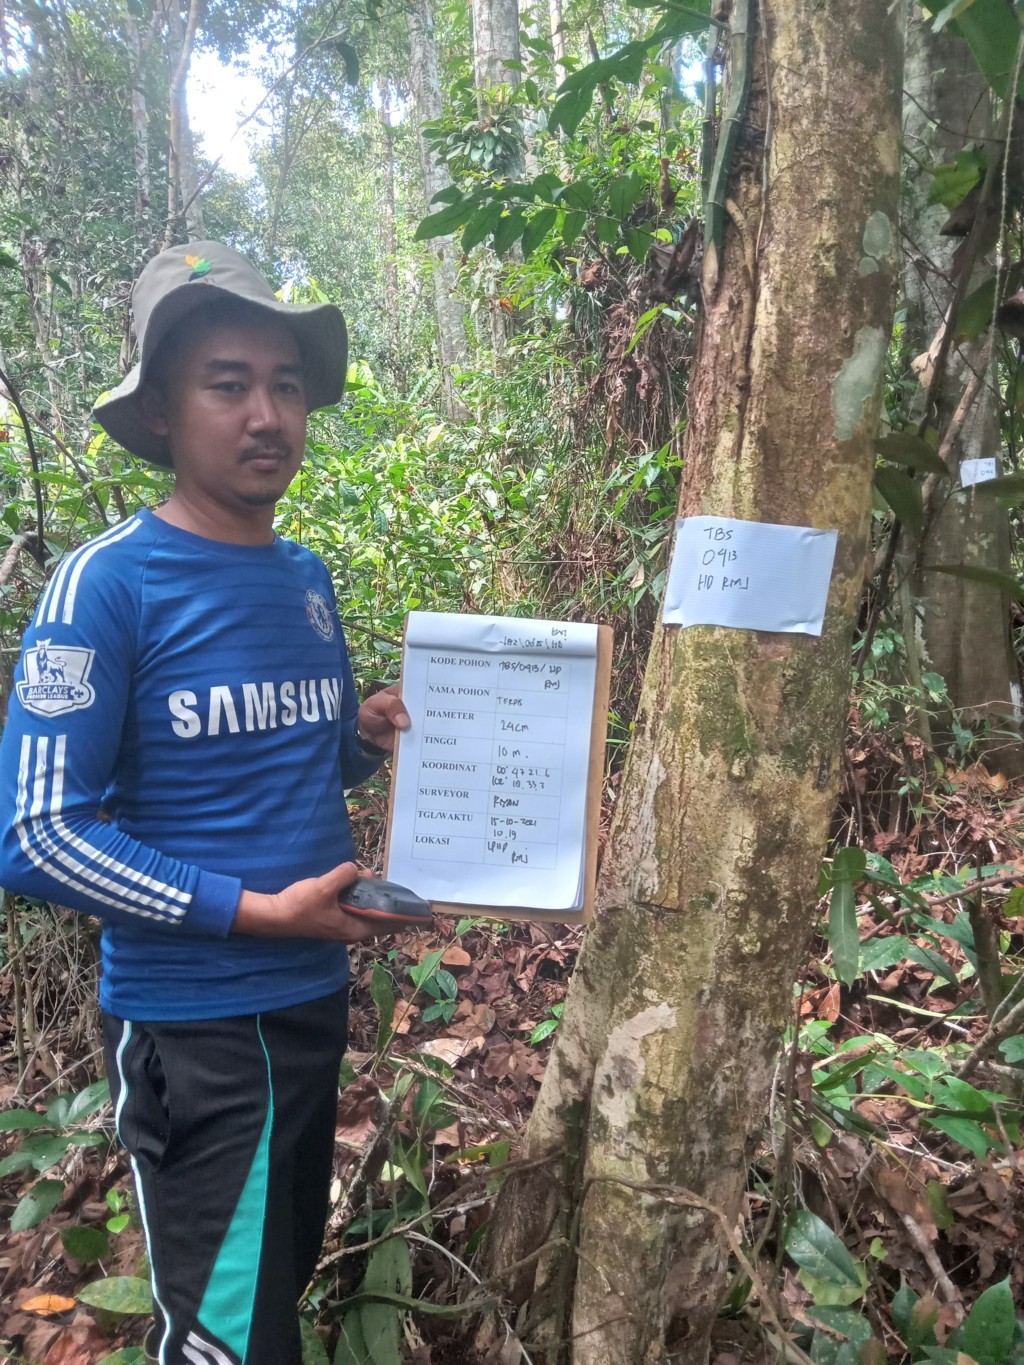 BARCLAYS
PREMIER LEAGUE
SAMSUN
TBS
0913
HD RMJ
KODE POHON TBS/0913/HD
RMJ
NAMA POHON
DIAMETER 24cm
TINGGI 10 m.
KOORDINAT 00° 47 21.6
102° 10. 33.7
SURVEYOR RIYAN
TGL/WAKTU 15-10-2021
10.19
LOKASI LPHD
RMJ
TBS